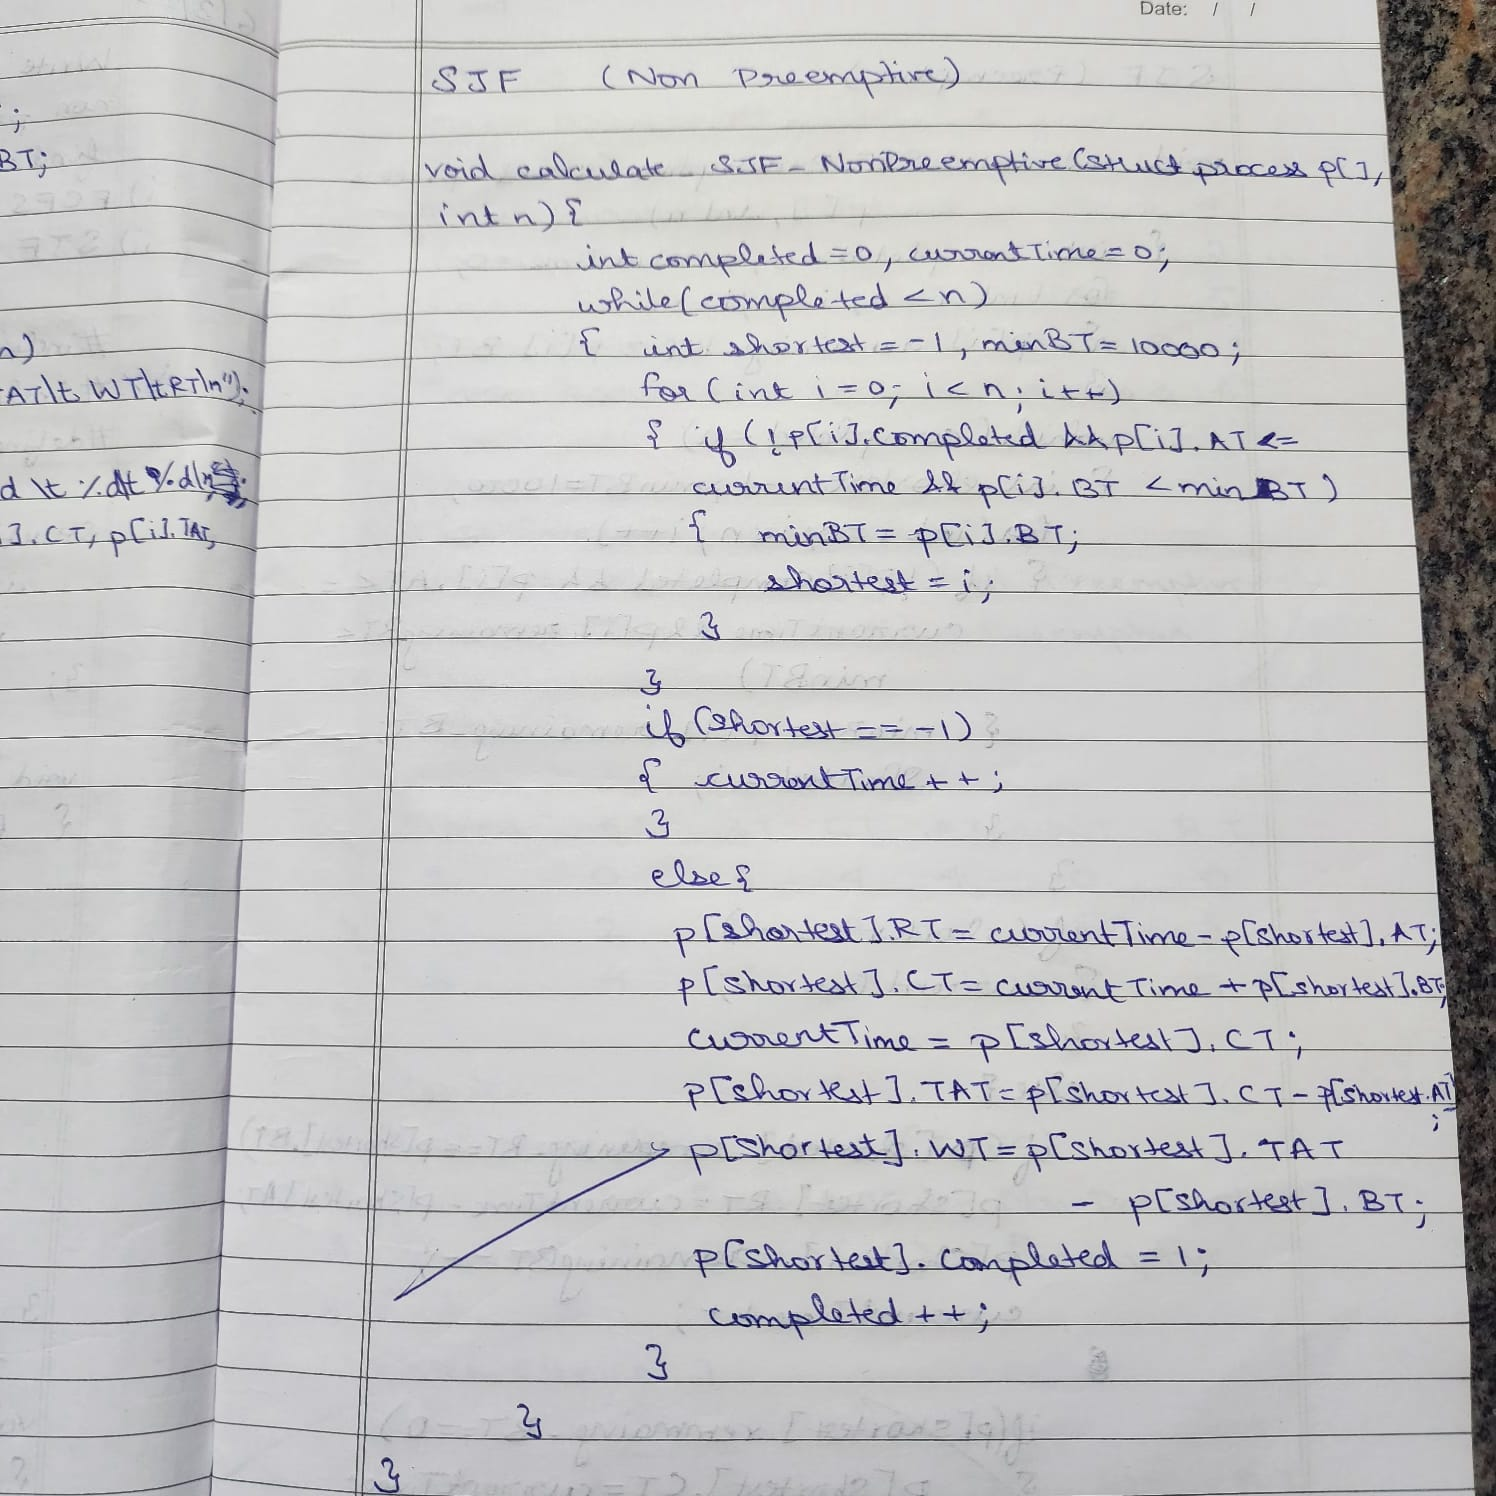 Date: / /
SJF (Non Preemptive)
void calculate_SJF_NonPreemptive(struct process p[],
int n){
int completed=0, currentTime=0;
while(completed<n)
{ int shortest=-1, minBT=10000;
for(int i=0; i<n; i++)
{ if(!p[i].completed && p[i].AT<=
currentTime && p[i].BT <minBT)
{ minBT= p[i].BT;
shortest=i;
}
}
if(shortest==-1)
{ currentTime++;
}
else{
p[shortest].RT= currentTime-p[shortest].AT;
p[shortest].CT=currentTime+p[shortest].BT;
currentTime= p[shortest].CT;
p[shortest].TAT=p[shortest].CT-p[shortest.AT]
;
p[shortest].WT=p[shortest].TAT
- p[shortest].BT;
p[shortest].completed=1;
completed++;
}
}
}
;
BT;
n)
TAT\t WT\tRT\n");
d \t %d\t %d\n
].CT, p[i].TAT,